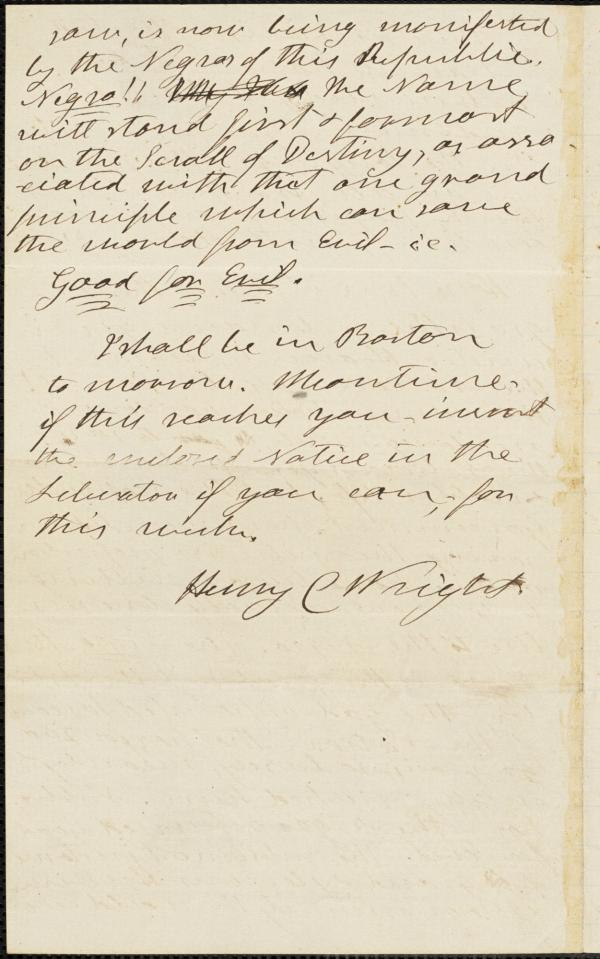 saw, is now being manifested
by the Negros of this Republic.
Negro!! The Name
will stand first & formost
on the Scroll of Destiny, as asso-
ciated with that one grand
principle which can save
the world from Evil - i.e.
Good for Evil.
I shall be in Boston
to morrow. Meantime -
if this reaches you - insert
the enclosed Notice in the
Liberator if you can, - for
this week.
Henry C Wright